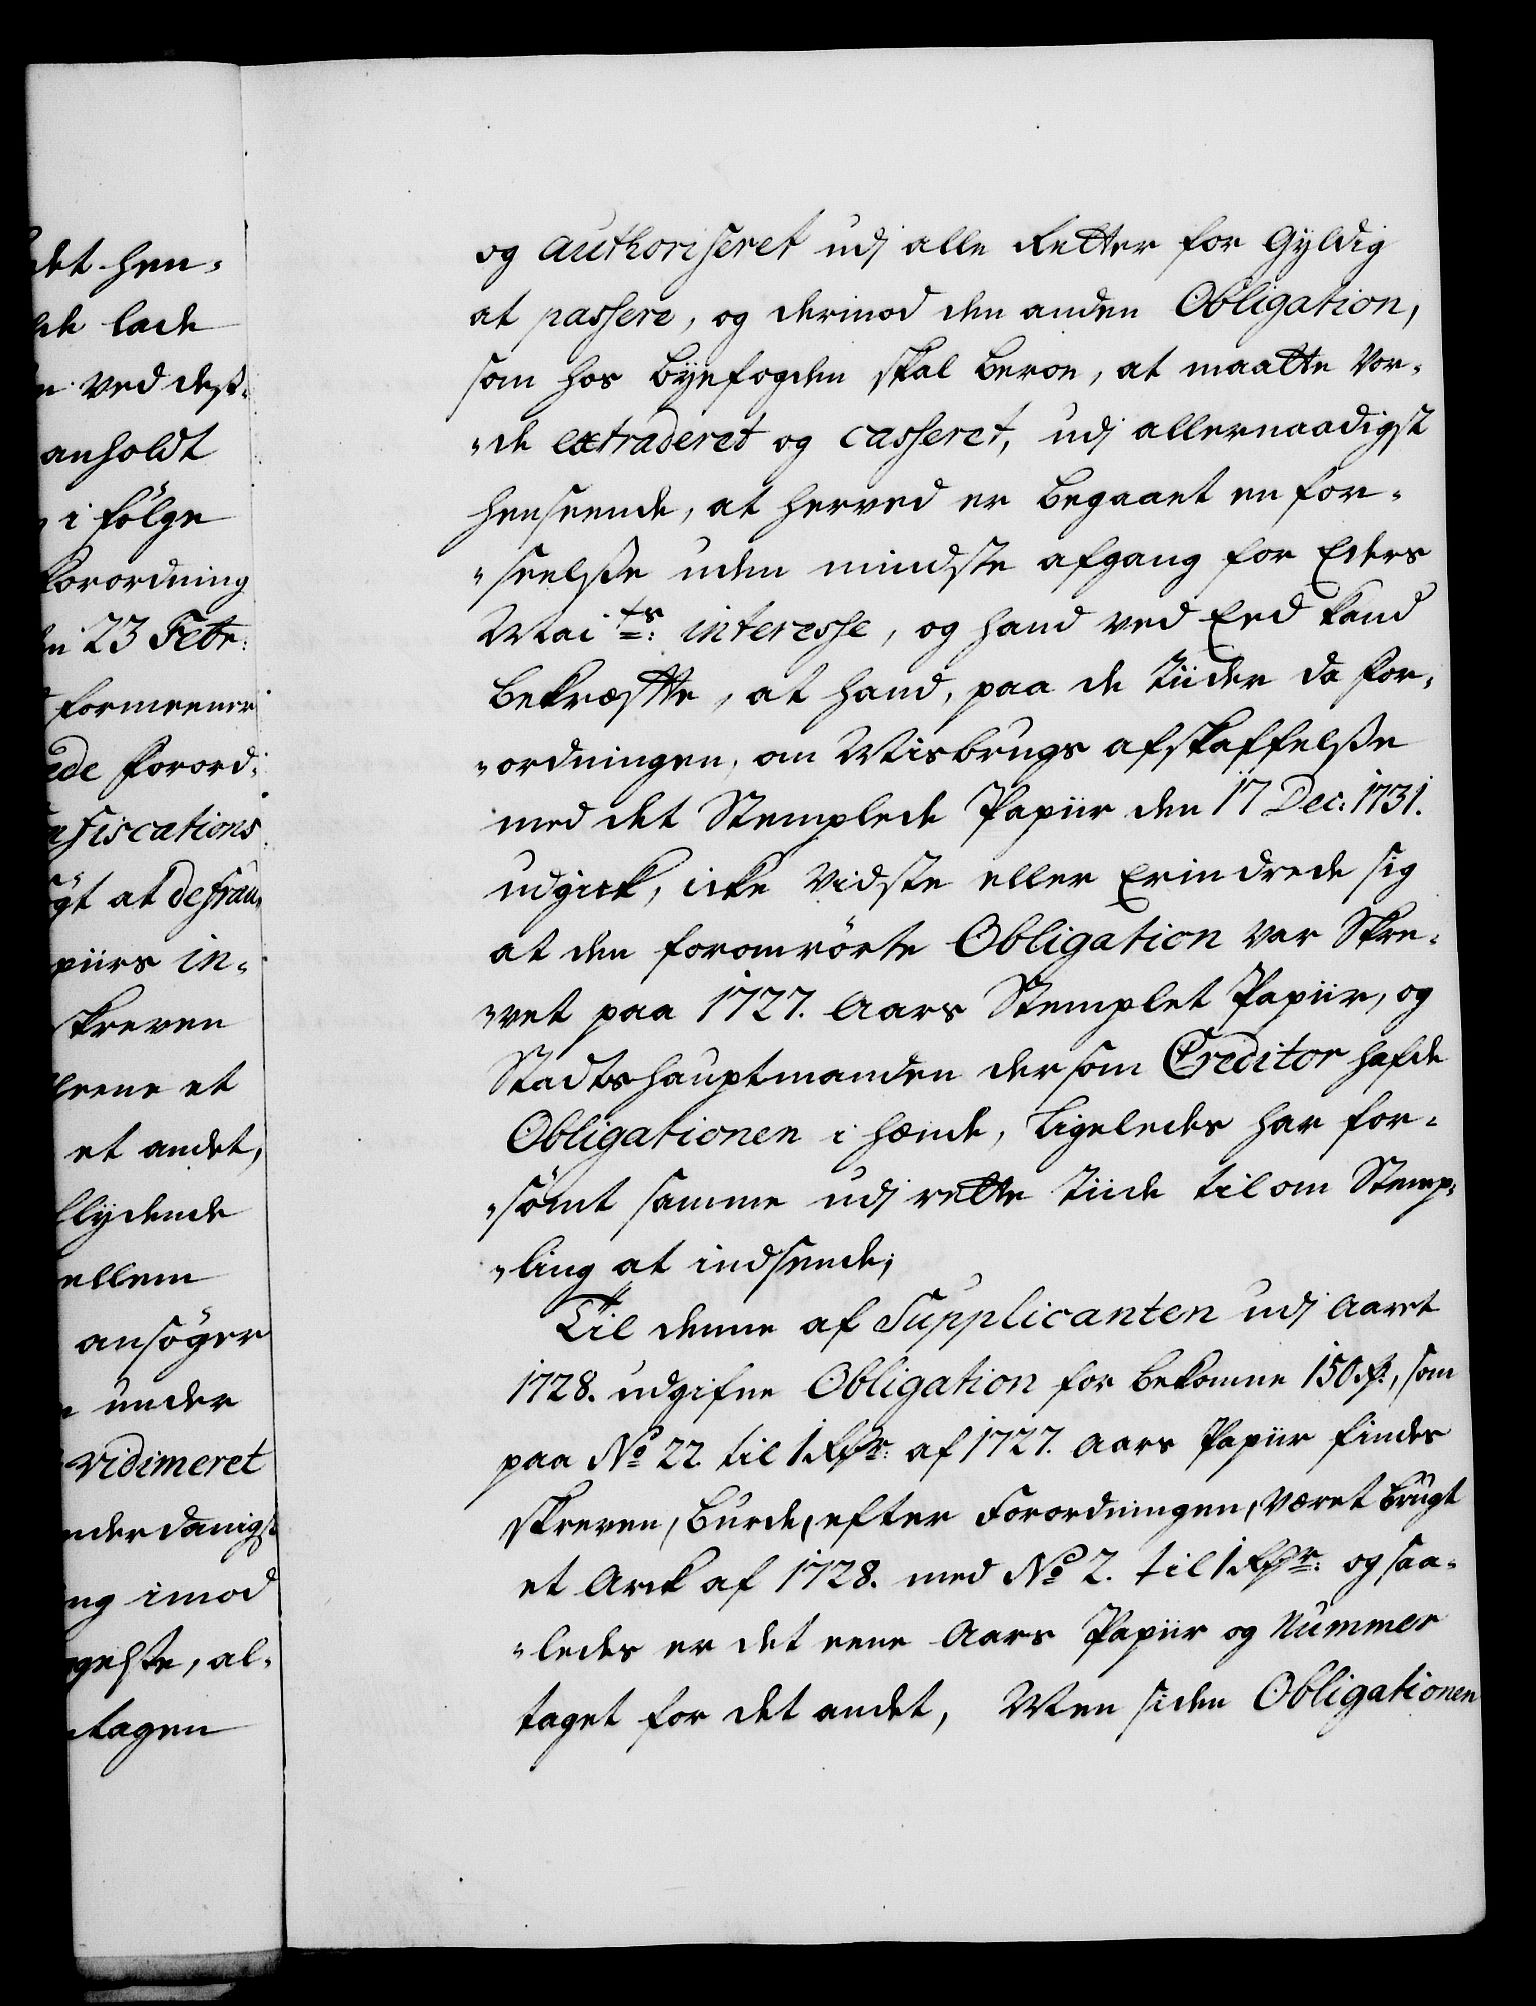 det hen-
lde lade
n ved dess-
anholdt
i følge
Forordning
n 23 Febr:
formeener
ede Forord-
nfiscations
gt at defrau-
piirs in-
skreven
leene et
et andet,
llydende
ellem
ansöger
n under
vidimeret
nderdanigst
ng imod
gelse, al-
ntagen
og authoriseret udj alle Retter for Gyldig
at passere, og derimod den anden Obligation,
som hos Byefogden skal beroe, at maatte vor-
-de extraderet og casseret, udj allernaadigst
henseende, at herved er begaaet en for-
-seelsse uden mindste afgang for Eders
Maits: interesse, og hand ved Eed kand
bekræftte, at hand, paa de tiider da For-
-ordningen, om Misbrugs afskaffelsse
med det Stemplede Papiir den 17 Dec: 1731.
udgick, icke vidste eller Erindrede sig
at den foromrörte Obligation var Skre-
-vet paa 1727. Aars Stemplet Papiir, og
Stadtshauptmanden der som Creditor hafde
Obligationen i hænde, ligeledes har for-
-sömt samme udj rette tiide til om Stemp-
-ling at indsende;
Til denne af Supplicanten udj Aaret
1728. udgifne Obligation for bekomne 150 Rdr, som
paa No 22 til 1 Rdr: af 1727. Aars Papiir findes
skreven, burde, efter Forordningen, været brugt
et Arck af 1728. med No 2. til 1 Rdr: og saa-
-ledes er det eene Aars Papiir og Nummer
taget for det andet, Men siden Obligationen